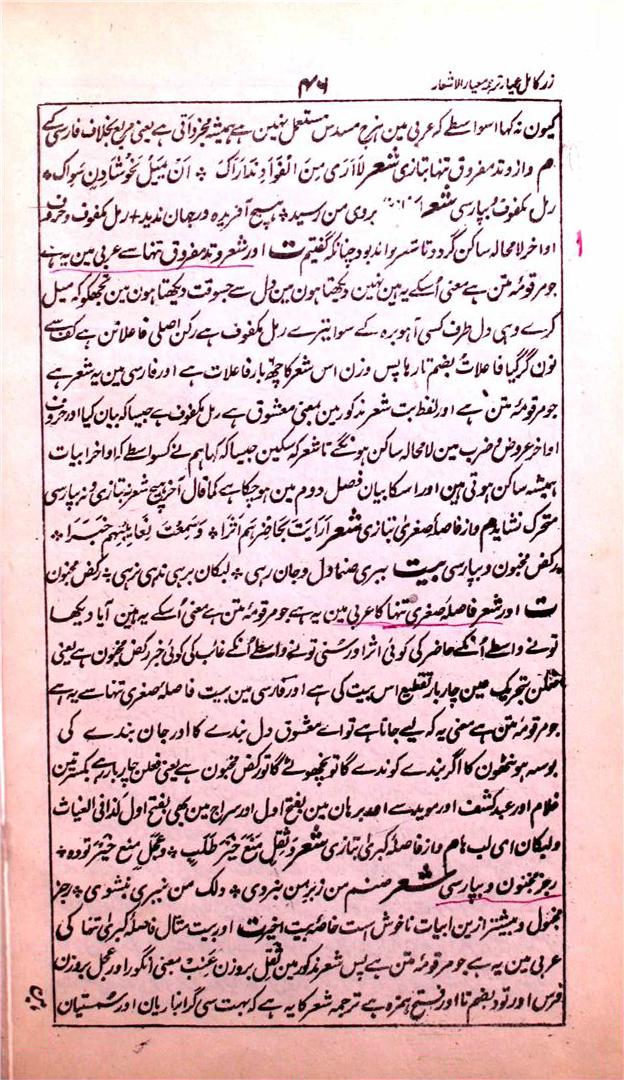 زر کامل عیار ترجمہ معیار الاشعار
۴۶
کیون نہ کہا اسواسطے کہ عربی مین ہزج مسدس مستعمل نہین ہے ہمیشہ مجزو آتی ہے یعنی مربع بخلاف فارسی کے
م واز وتد مفروق تنہا بتازی شعر لَا اَرَیٰ مِنَ الْفُؤَادِ
رمل مکفوف بپارسی شعر بروی من رسید ٭ ہیچ آفریدہ در جہان ندید ٭ رمل مکفوف و حروف
اواخر لامحالہ ساکن گردد تا شعر تواند بود چنانکہ گفتیم ت اور شعر وتد مفروق تنہا سے عربی مین یہ ہے
جو مرقومۂ متن ہے معنی اُسکے یہ ہین نہین دیکھتا ہون مین دل سے جسوقت دیکھتا ہون مین تجھکو کہ میل
کرے وہی دل طرف کسی آہو برہ کے سوا تیرے رمل مکفوف ہے رکن اصلی فاعلاتن ہے کف سے
نون گر گیا فاعلاتُ بضم تا رہا پس وزن اس شعر کا چھ بار فاعلات ہے اور فارسی مین یہ شعر ہے
جو مرقومۂ متن ہے اور لفظ بت شعر مذکور مین بمعنی معشوق ہے رمل مکفوف ہے جیسا کہ بیان کیا اور حروف
اواخر عروض و ضرب مین لامحالہ ساکن ہونگے تا شعر کہہ سکین جیسا کہ کہا ہم نے کسواسطے کہ اواخر ابیات
ہمیشہ ساکن ہوتی ہین اور اسکا بیان فصل دوم مین ہو چکا ہے کما قال آخر ہیچ شعر نہ بتازی و نہ بپارسی
متحرک نشاید م واز فاصلۂ صغریٰ بتازی شعر اَرَایْتَ لِحَاضِرِهِمْ اَثَرًا ٭ وَسَمِعْتَ لِغَائِبِهِمْ خَبَرًا ٭
رکض مخبون و بپارسی بیت ببری صنما دل و جان رہی ٭ لبکان برہی ندہی نرہی ٭ رکض مخبون
ت اور شعر فاصلۂ صغریٰ تنہا کا عربی مین یہ ہے جو مرقومۂ متن ہے معنی اُسکے یہ ہین آیا دیکھا
تونے واسطے اُنکے حاضر کی کوئی اثر اور سُنی تونے واسطے اُنکے غائب کی کوئی خبر رکض مخبون ہے یعنی
فعلن بتحریک عین چار بار تقطیع اس بیت کی ہے اور فارسی مین بیت فاصلۂ صغریٰ تنہا سے یہ ہے
جو مرقومۂ متن ہے معنی یہ کہ لیے جاتا ہے تو اے معشوق دل بندے کا اور جان بندے کی
بوسہ ہونٹھون کا اگر بندے کو ندے گا تو نچھوٹے گا تو رکض مخبون ہے یعنی فعلن چار بار رہے بکسرتین
غلام اور عبد کشف اور موید سے اور برہان مین بفتح اول اور سراج مین بھی بفتح اول کذا فی الغیاث
و لبکان ای لب ہا م واز فاصلۂ کبریٰ بتازی شعر وَثِقَلٍ مَنَعَ خَيْرَ طَلَبٍ ٭ وَعَجَلٍ مَنَعَ خَيْرَ تُؤَدَه ٭
رجز مخبول و بپارسی شعر صنم من زبر من بنروی ٭ دلک من نبری نشنوی ٭ رجز
مخبول و بیشتر ازین ابیات ناخوش است خاصہ بیت اخیر ت اور بیت مثال فاصلۂ کبریٰ تنہا کی
عربی مین یہ ہے جو مرقومۂ متن ہے پس شعر مذکور مین ثقل بروزن عنب معنی انگور اور عجل بروزن
فرس اور تود بضم تا اور فتح ہمزہ ہے ترجمہ شعر کا یہ ہے کہ بہت سی گرانباریان اور سستیان